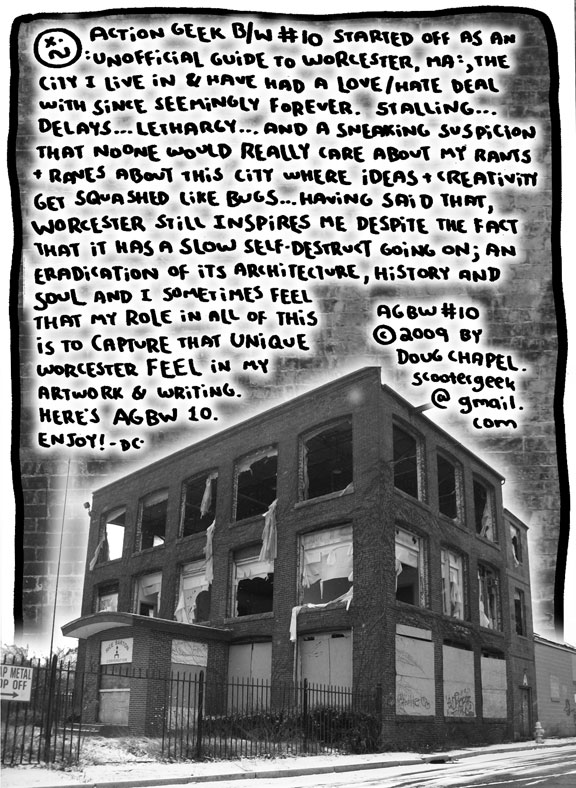 ACTION GEEK B/W #10 STARTED OFF AS AN
"UNOFFICIAL GUIDE TO WORCESTER, MA", THE
CITY I LIVE IN & HAVE HAD A LOVE/HATE DEAL
WITH SINCE SEEMINGLY FOREVER. STALLING...
DELAYS... LETHARGY... AND A SNEAKING SUSPICION
THAT NOONE WOULD REALLY CARE ABOUT MY RANTS
+ RAVES ABOUT THIS CITY WHERE IDEAS + CREATIVITY
GET SQUASHED LIKE BUGS... HAVING SAID THAT,
WORCESTER STILL INSPIRES ME DESPITE THE FACT
THAT IT HAS A SLOW SELF-DESTRUCT GOING ON; AN
ERADICATION OF ITS ARCHITECTURE, HISTORY AND
SOUL AND I SOMETIMES FEEL
THAT MY ROLE IN ALL OF THIS
IS TO CAPTURE THAT UNIQUE
WORCESTER FEEL IN MY
ARTWORK & WRITING.
HERE'S AGBW 10.
ENJOY! -DC-
AGBW #10
© 2009 BY
DOUG CHAPEL.
scootergeek
@ gmail.
com
AP METAL
OP OFF